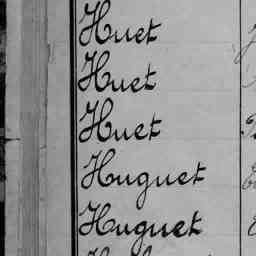 Huet
Huet
Huet
Huguet
Huguet